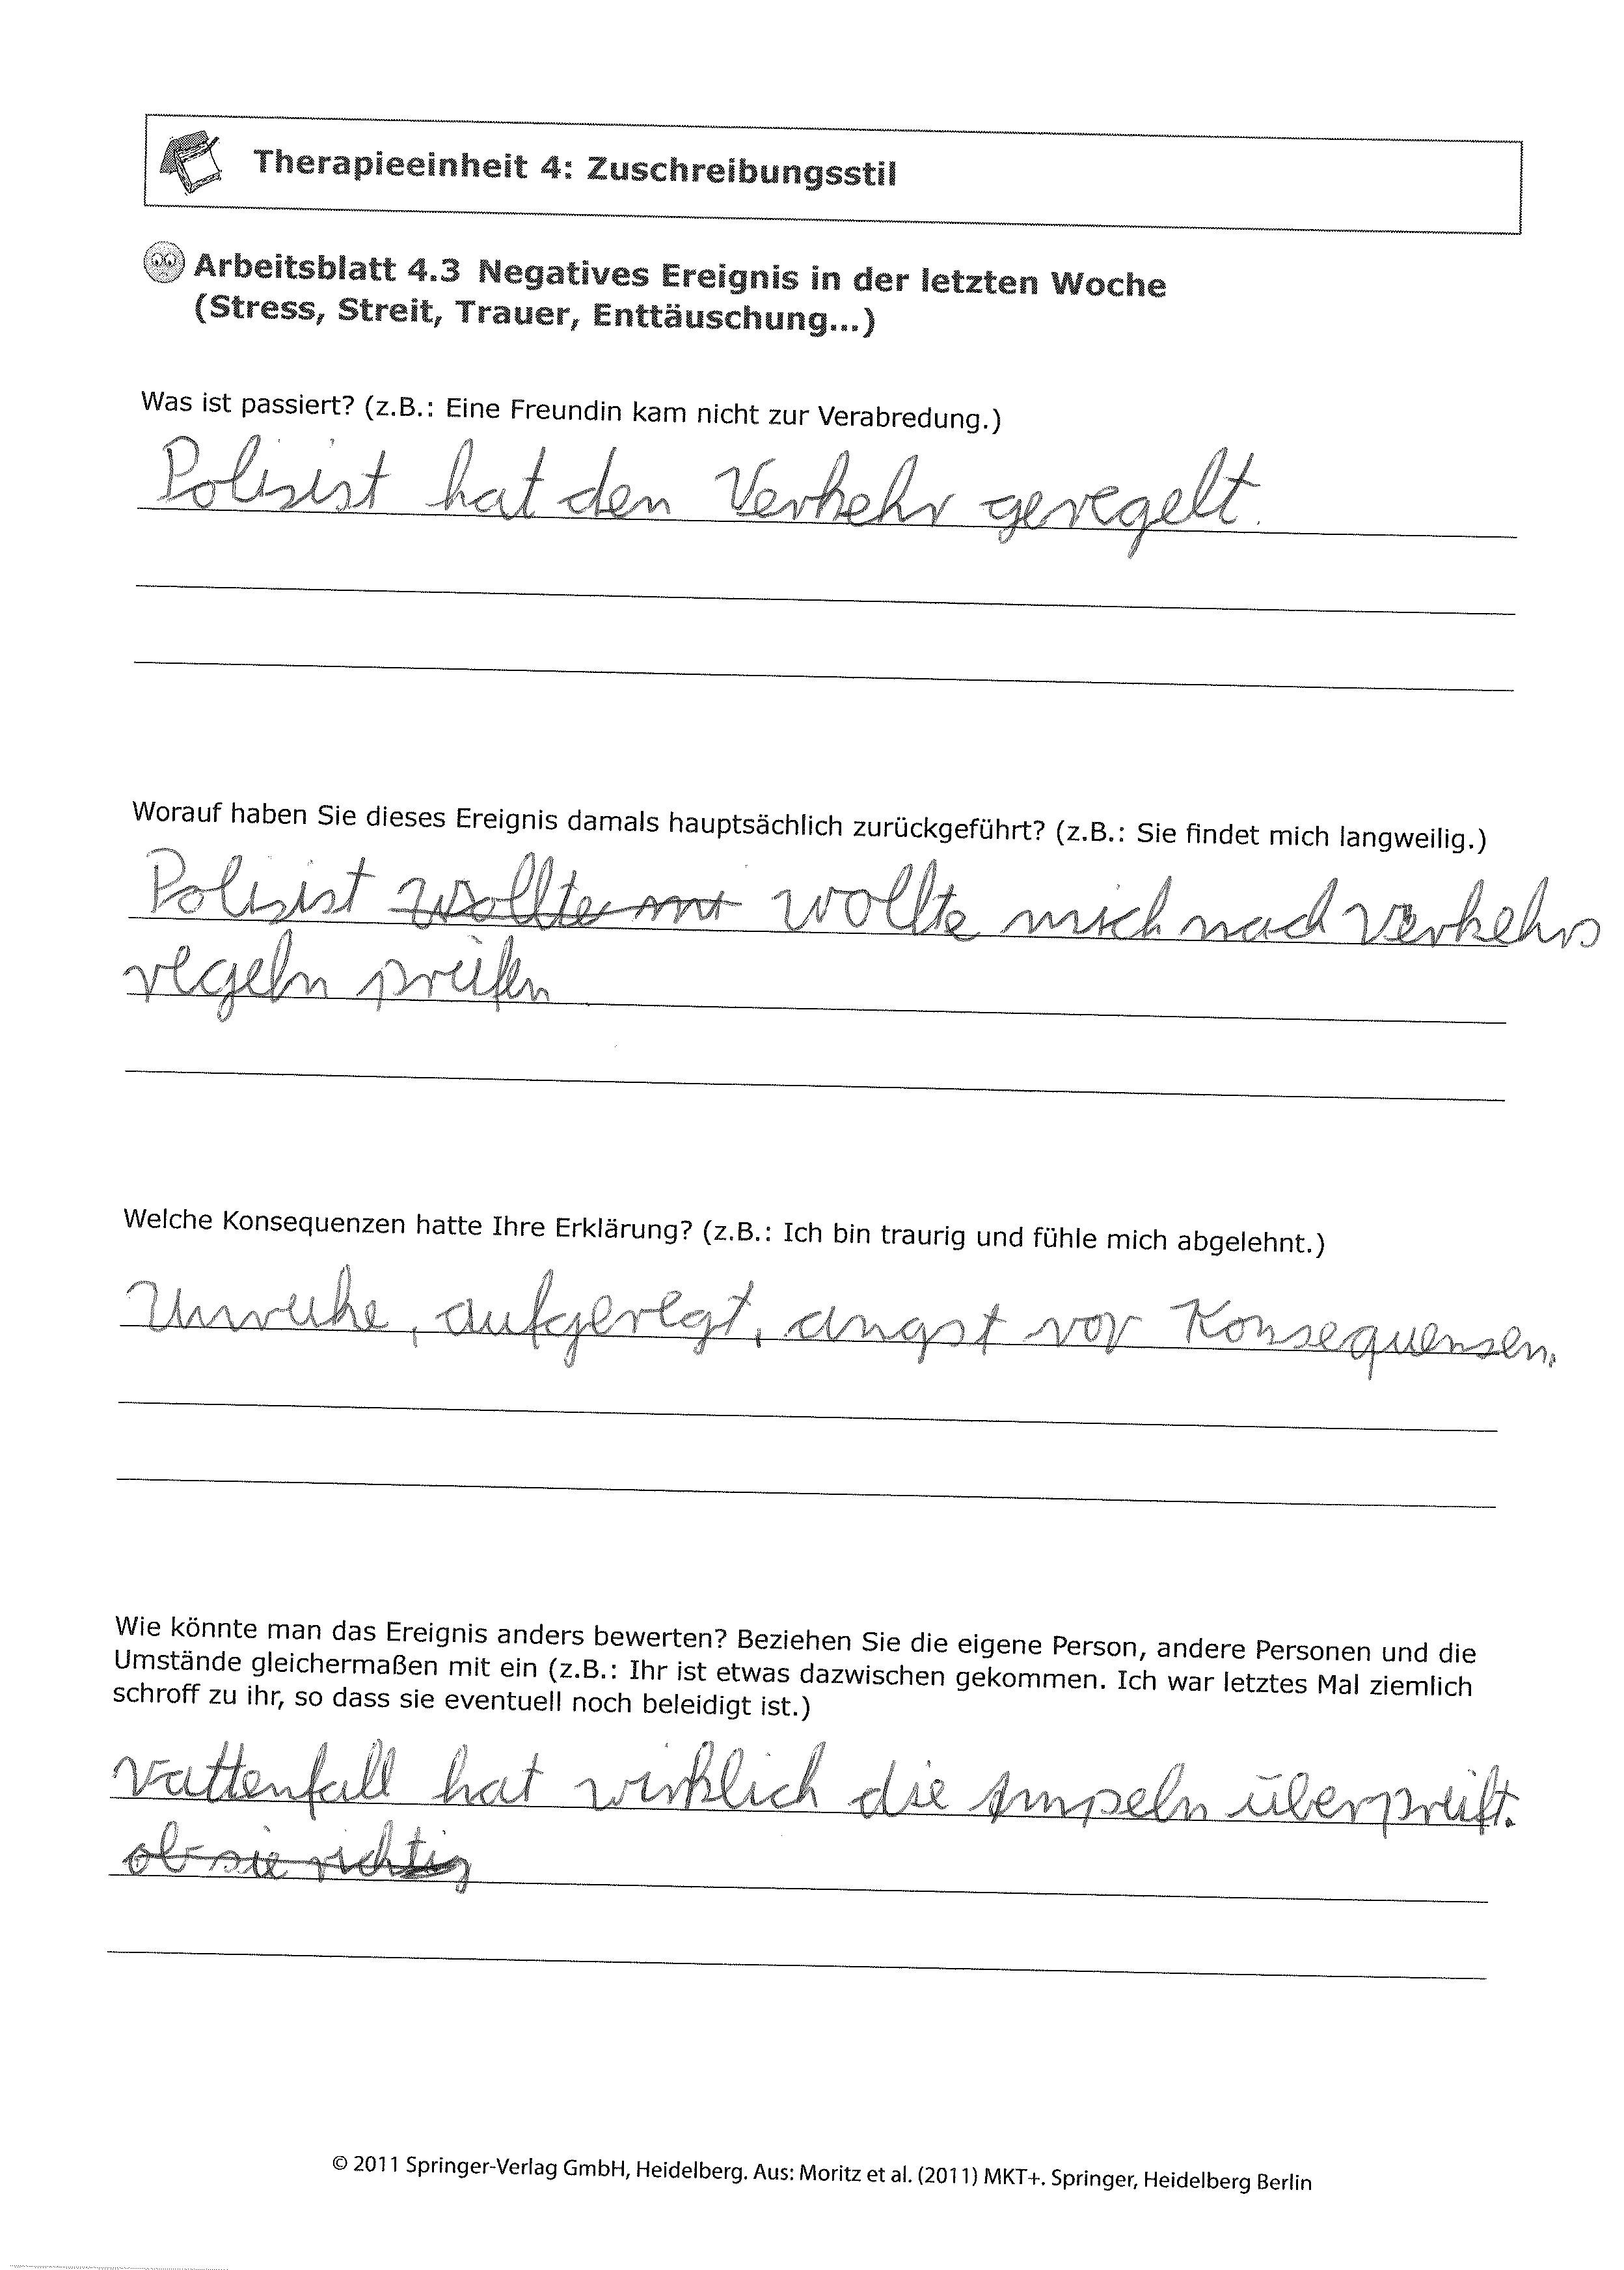 Therapieeinheit 4: Zuschreibungsstil
Arbeitsblatt 4.3 Negatives Ereignis in der letzten Woche
(Stress, Streit, Trauer, Enttäuschung...)
Was ist passiert? (z.B.: Eine Freundin kam nicht zur Verabredung.)
Polisist hat den Verkehr geregelt.
Worauf haben Sie dieses Ereignis damals hauptsächlich zurückgeführt? (z.B.: Sie findet mich langweilig.)
Polisist wollte wollte mich nach Verkehrs
regeln prüfen
Welche Konsequenzen hatte Ihre Erklärung? (z.B.: Ich bin traurig und fühle mich abgelehnt.)
Unruhe, aufgeregt, angst vor Konsequensen.
Wie könnte man das Ereignis anders bewerten? Beziehen Sie die eigene Person, andere Personen und die
Umstände gleichermaßen mit ein (z.B.: Ihr ist etwas dazwischen gekommen. Ich war letztes Mal ziemlich
schroff zu ihr, so dass sie eventuell noch beleidigt ist.)
Vattenfall hat wirklich die Ampeln überprüft.
ob sie richtig
© 2011 Springer-Verlag GmbH, Heidelberg. Aus: Moritz et al. (2011) MKT+. Springer, Heidelberg Berlin